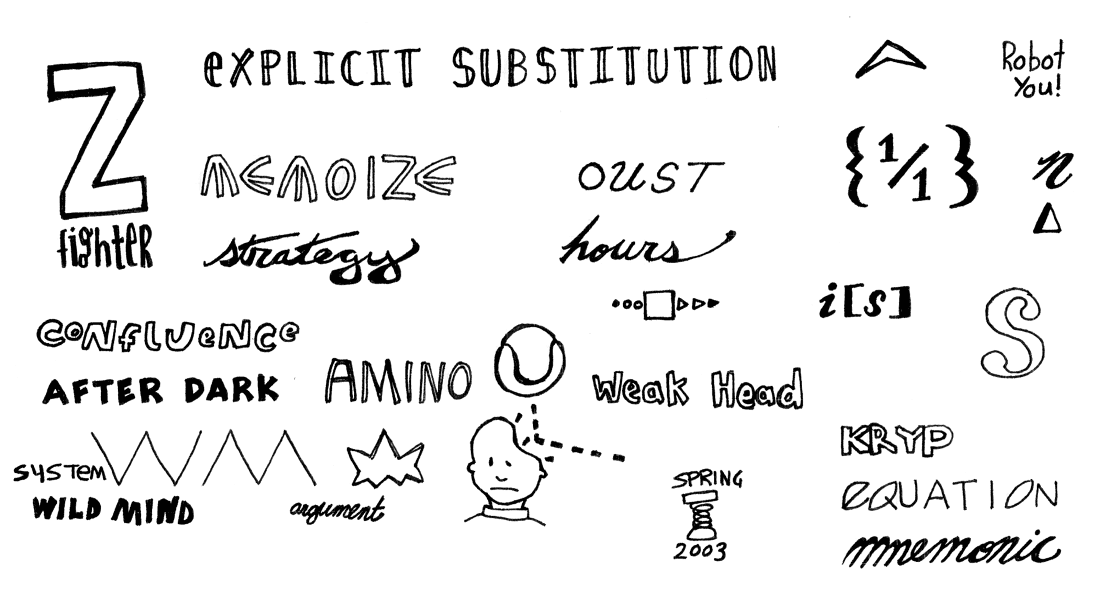 Z
fighter
EXPLICIT SUBSTITUTION
Robot
You!
MEMOIZE
OUST
{1/1}
n
strategy
hours
i[s]
S
CONFLUENCE
AFTER DARK
AMINO
Weak Head
SYSTEM WM
WILD MIND
argument
SPRING
2003
KRYP
EQUATION
mnemonic